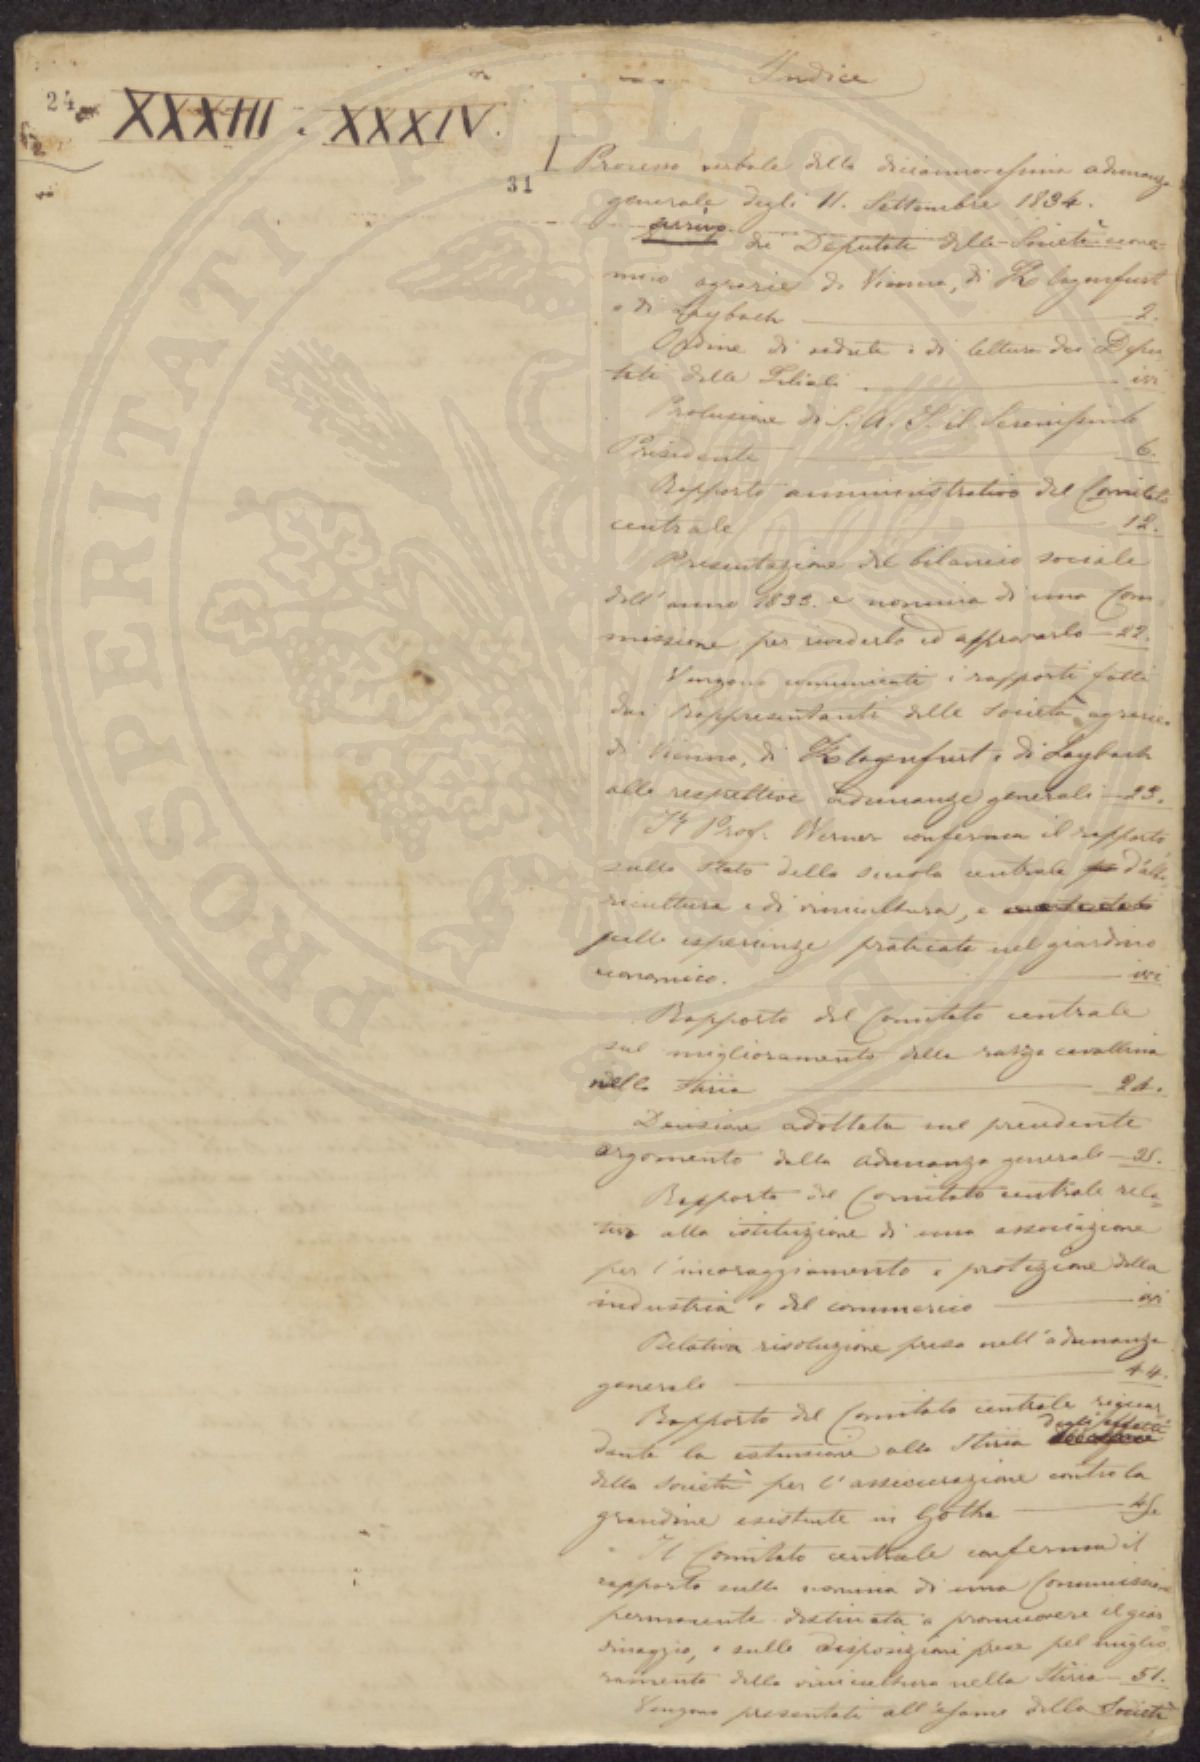 Indice
24
XXXIII e XXXIV.
31
Processo verbale della diciannovesima adunanza
generale degli 11. Settembre 1834.
arrivo
dei Deputati delle Società econo-
mico agrarie di Vienna, di Klagenfurt
e di Laybach 2.
Ordine di sedute e di lettura dei Depu
tati delle Filiali ivi
Prolusione di S. A. I. il Serenissimo
Presidente 6.
Rapporto amministrativo del Comitato
centrale 12.
Presentazione del bilancio sociale
dell'anno 1833. e nomina di una Com
missione per rivederlo ed approvarlo 22.
Vengono comunicati i rapporti fatti
dai Rappresentanti delle Società agrarie
di Vienna, di Klagenfurt e di Laybach
alle respettive adunanze generali 23.
Il Prof. Werner conferma il rapporto
sullo stato della scuola centrale
ricultura e di vinicultura, e
sulle esperienze praticate nel giardino
economico. ivi
Rapporto del Comitato centrale
sul miglioramento della razza cavallina
nella Stiria 24.
Decisione adottata sul precedente
argomento dalla adunanza generale 25.
Rapporto del Comitato centrale rela-
tivo alla istituzione di una associazione
per l'incoraggiamento e protezione della
industria e del commercio ivi
Relativa risoluzione presa nell'adunanza
generale 44.
Rapporto del Comitato centrale riguar
dante la estensione alla Stiria degli effetti
della Società per l'assicurazione contro la
grandine esistente in Gotha 45.
Il Comitato centrale conferma il
rapporto sulla nomina di una Commissione
permanente destinata a promuovere il giar
dinaggio, e sulle disposizioni prese pel miglio
ramento della vinicultura nella Stiria 51.
Vengono presentati all'esame della Società
PROSPERITATI PVBLICAE